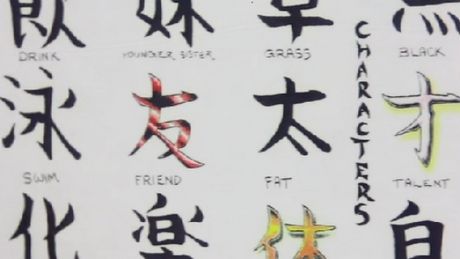 飲 妹 草 黒
DRINK YOUNGER SISTER GRASS BLACK
泳 友 太 才
SWIM FRIEND FAT TALENT
化 楽 体 自
CHARACTERS